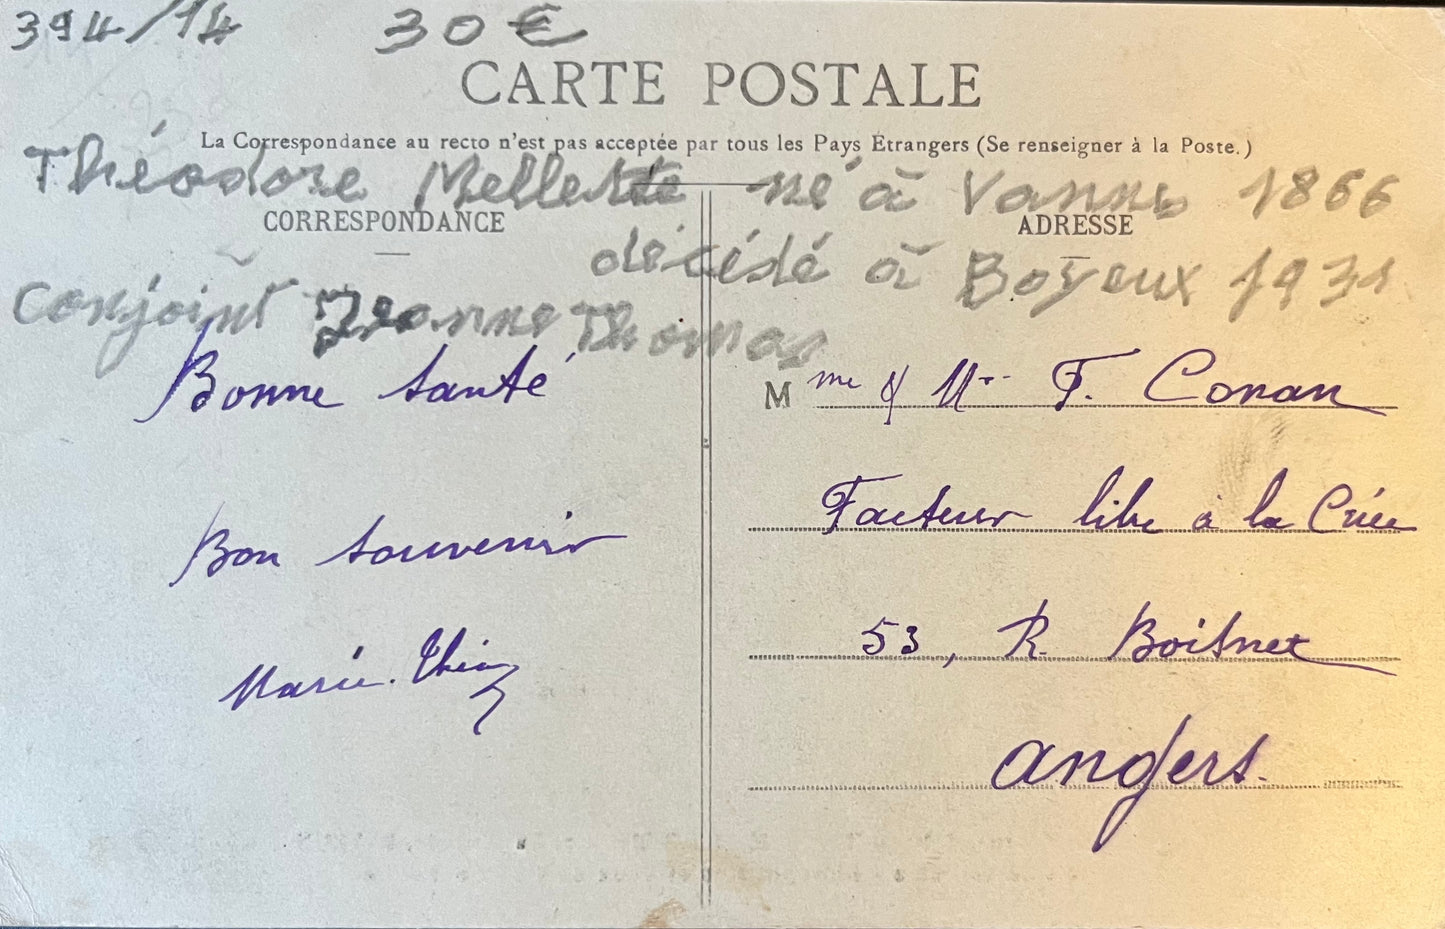 394/14 30 €
CARTE POSTALE
La Correspondance au recto n'est pas acceptée par tous les Pays Étrangers (Se renseigner à la Poste.)
Théodore né à Vannes 1866
CORRESPONDANCE
ADRESSE
décédé à Boyeux 1931
Conjoint Jeanne Thomas
Bonne santé
Bon souvenir
Marie.
Mme & Mr. F. Conan
Facteur libre à la Criée
53, R. Boisnet
Angers.